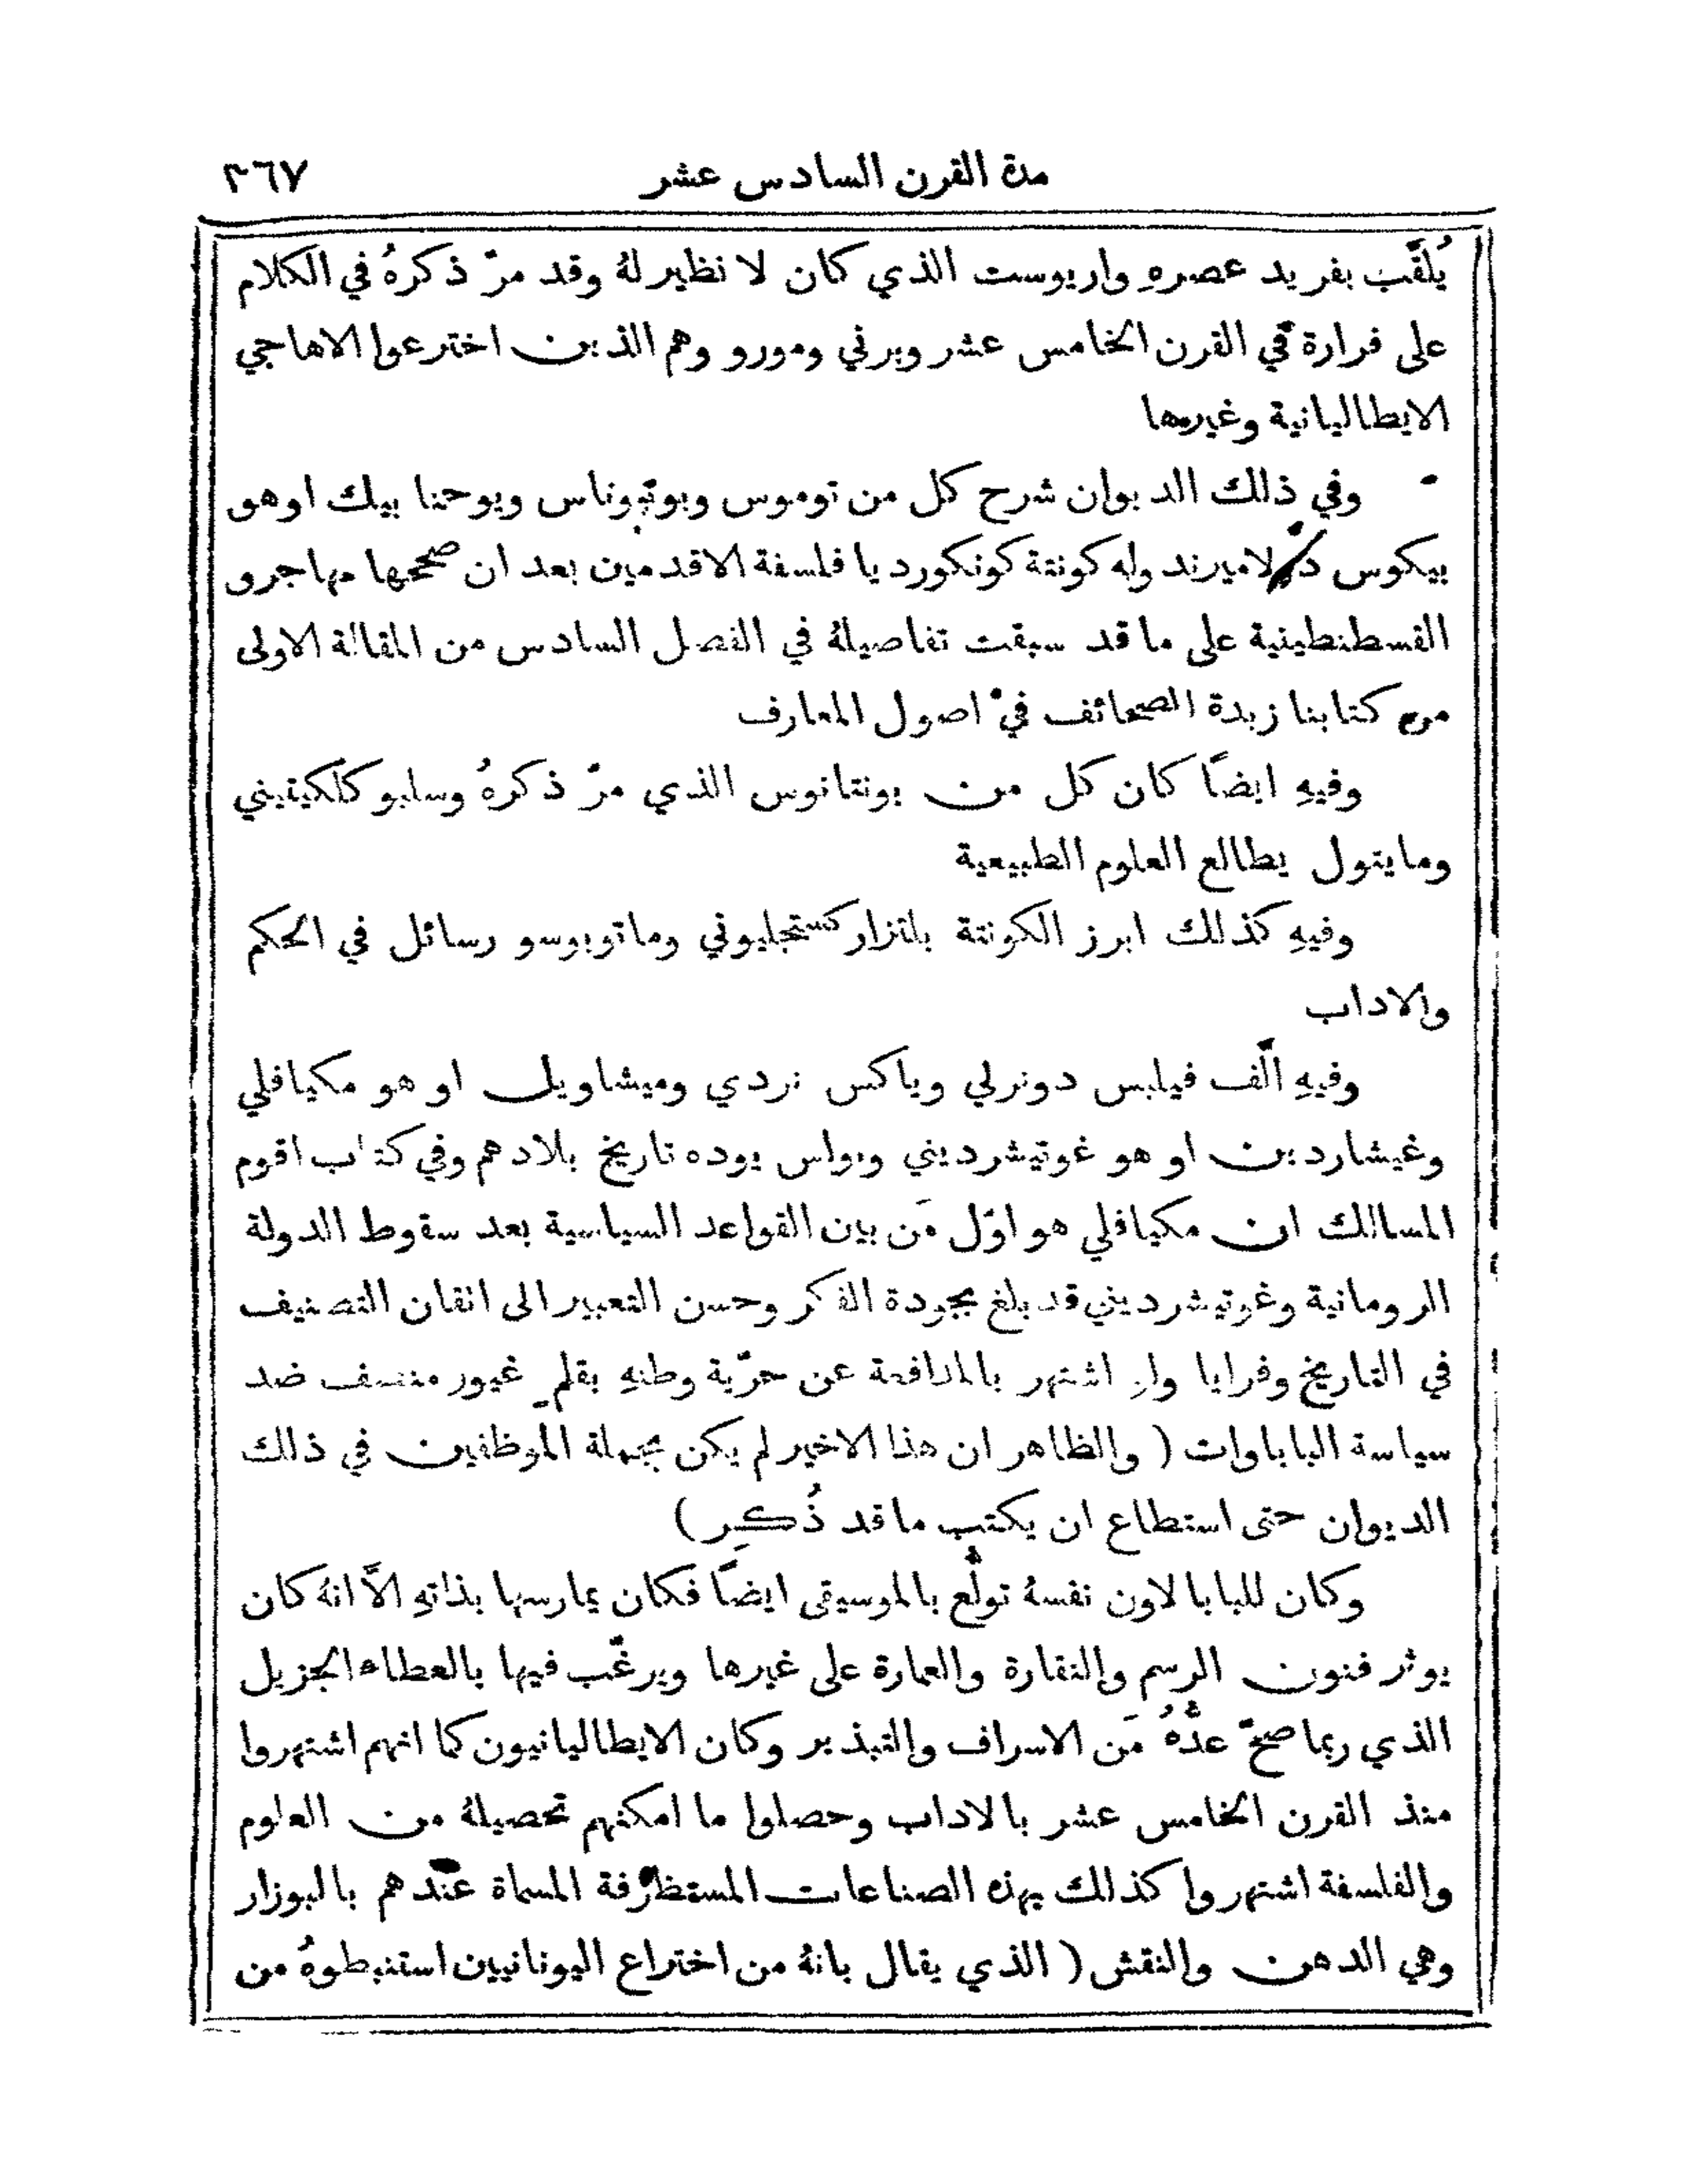 مدة القرن السادس عشر ٣٦٧
يُلقَّب بفريد عصرهِ واريوست الذي كان لا نظير لهُ وقد مرّ ذكرهُ في الكلام
على فرارة في القرن الخامس عشر وبرني ومورو وهم الذين اخترعوا الاهاجي
الايطاليانية وغيرها
وفي ذلك الديوان شرح كل من توموس وبوتبوناس ويوحنا بيك او هو
بيكوس لاميرند وله كونتة كونكورديا فلسفة الاقدمين بعد ان صححها مهاجرو
القسطنطينية على ما قد سبقت تفاصيلهُ في الفصل السادس من المقالة الاولى
من كتابنا زبدة الصحائف في اصول المعارف
وفيهِ ايضًا كان كل من بونتانوس الذي مرّ ذكرهُ وسليو كلكيتيني
وما يتول يطالع العلوم الطبيعية
وفيهِ كذلك ابرز الكونتة بلتزار كستجليوني وماتوبوسو رسائل في الحكم
والاداب
وفيهِ الَّف فيلبس دونرلي وياكس نردي وميشاويل او هو مكيافلي
وغيشاردين او هو غوتيشرديني وبولس يوده تاريخ بلادهم وفي كتاب اقوم
المسالك ان مكيافلي هو اوّل مَن بين القواعد السياسية بعد سقوط الدولة
الرومانية وغوتيشرديني قد بلغ بجودة الفكر وحسن التعبير الى اتقان التصنيف
في التاريخ وفرايا ولو اشتهر بالمدافعة عن حرّية وطنهِ بقلم غيور منصف ضد
سياسة الباباوات ( والظاهر ان هذا الاخير لم يكن بجملة الموظفين في ذلك
الديوان حتى استطاع ان يكتب ما قد ذُكِر )
وكان للبابا لاون نفسهُ تولُّع بالموسيقى ايضًا فكان يمارسها بذاتهِ الَّا انهُ كان
يوثر فنون الرسم والنقارة والعمارة على غيرها ويرغّب فيها بالعطاء الجزيل
الذي ربما صحّ عدُّهُ مَن الاسراف والتبذير وكان الايطاليانيون كما انهم اشتهروا
منذ القرن الخامس عشر بالاداب وحصلوا ما امكنهم تحصيلهُ من العلوم
والفلسفة اشتهروا كذلك بهذه الصناعات المستظرفة المسماة عندهم بالبوزار
وهي الدهن والنقش ( الذي يقال بانهُ من اختراع اليونانيين استنبطوهُ من